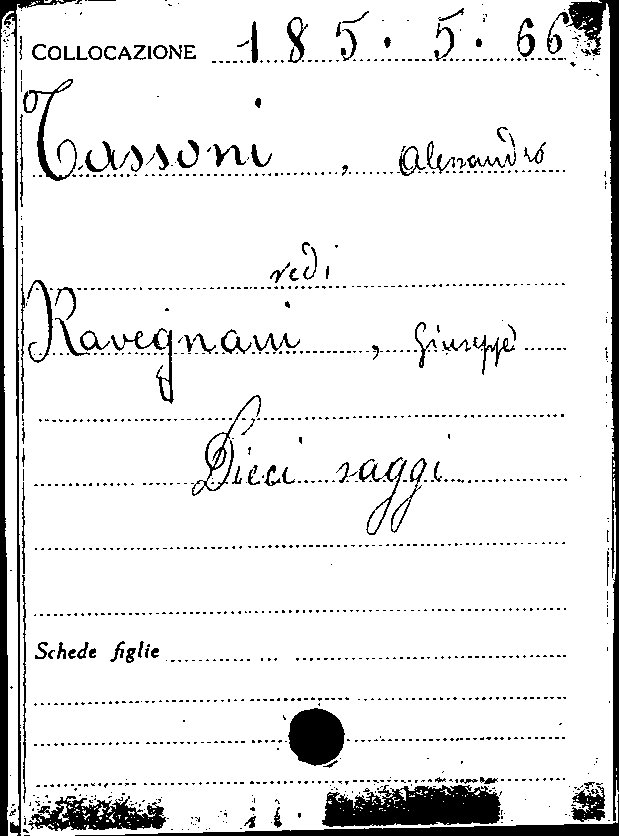 COLLOCAZIONE 185.5.66
Tassoni, Alessandro
vedi
Ravegnani, Giuseppe
Dieci saggi
Schede figlie